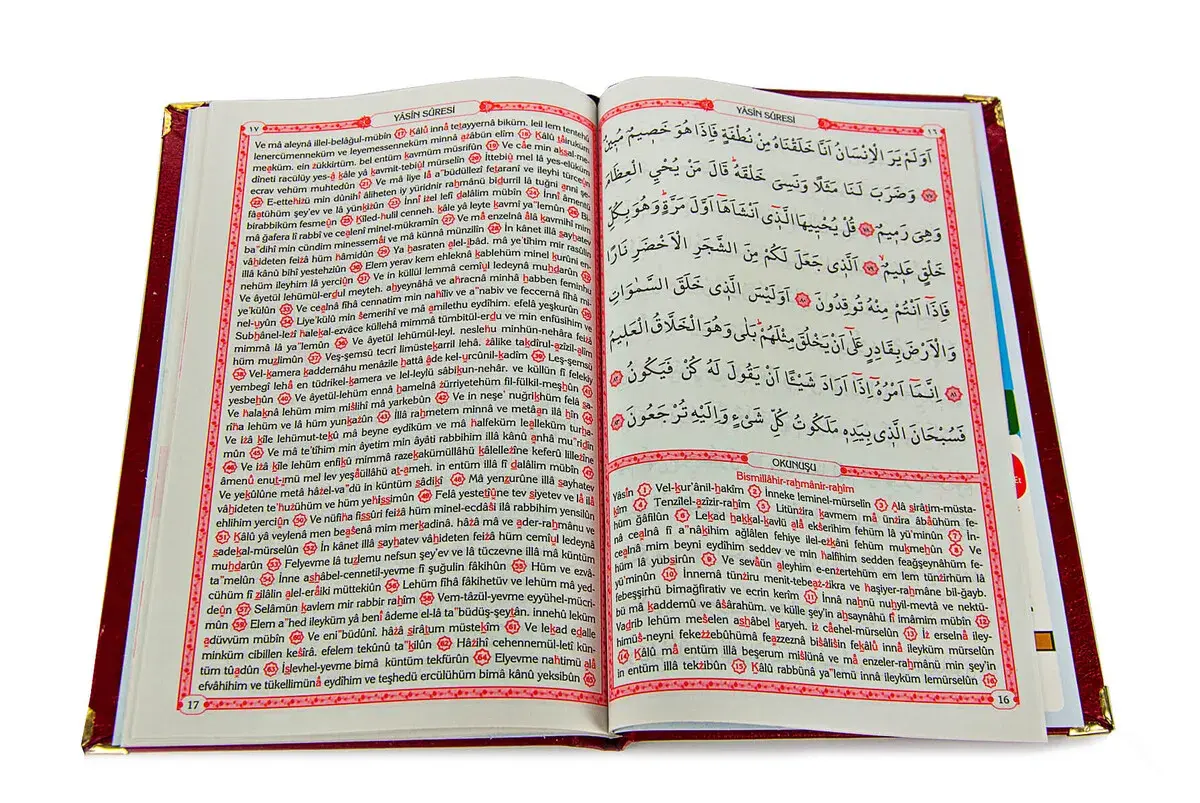 YÂSÎN SÛRESİ
١٦
اَوَلَمْ يَرَ الْاِنْسَانُ اَنَّا خَلَقْنَاهُ مِنْ نُطْفَةٍ فَاِذَا هُوَ خَصِيمٌ مُبِينٌ
٧٨ وَضَرَبَ لَنَا مَثَلًا وَنَسِىَ خَلْقَهُ قَالَ مَنْ يُحْيِي الْعِظَامَ
وَهِىَ رَمِيمٌ ٧٨ قُلْ يُحْيِيهَا الَّذِى اَنْشَاَهَا اَوَّلَ مَرَّةٍ وَهُوَ بِكُلِّ
خَلْقٍ عَلِيمٌ ٧٩ اَلَّذِى جَعَلَ لَكُمْ مِنَ الشَّجَرِ الْاَخْضَرِ نَارًا
فَاِذَا اَنْتُمْ مِنْهُ تُوقِدُونَ ٨٠ اَوَلَيْسَ الَّذِى خَلَقَ السَّمٰوَاتِ
وَالْاَرْضَ بِقَادِرٍ عَلٰى اَنْ يَخْلُقَ مِثْلَهُمْ بَلٰى وَهُوَ الْخَلَّاقُ الْعَلِيمُ
٨١ اِنَّمَا اَمْرُهُ اِذَا اَرَادَ شَيْئًا اَنْ يَقُولَ لَهُ كُنْ فَيَكُونُ ٨٢
فَسُبْحَانَ الَّذِى بِيَدِهِ مَلَكُوتُ كُلِّ شَىْءٍ وَاِلَيْهِ تُرْجَعُونَ ٨٣
OKUNUŞU
Bismillâhir-rahmânir-rahîm
Yâsîn 1 Vel-kur'ânil-hakîm 2 İnneke leminel-mürselîn 3 Alâ sirâtim-müsta-
kîm 4 Tenzîlel-azîzir-rahîm 5 Litünzira kavmem mâ ünzira âbâühüm fe-
hüm ğâfilûn 6 Lekad hakkal-kavlü alâ ekserihim fehüm lâ yü'minûn 7 İn-
nâ cealnâ fî a"nâkihim ağlâlen fehiye ilel-ezkâni fehüm mukmehûn 8 Ve
cealnâ mim beyni eydîhim seddev ve min halfihim sedden feağşeynâhüm fe-
hüm lâ yubsirûn 9 Ve sevâün aleyhim e-enzertehüm em lem tünzirhüm lâ
yü'minûn 10 İnnemâ tünziru menit-tebeaz-zikra ve haşiyer-rahmâne bil-ğayb.
febeşşirhü bimağfirativ ve ecrin kerîm 11 İnnâ nahnü nuhyil-mevtâ ve nektü-
bü mâ kaddemû ve âsârahüm. ve külle şey'in ahsaynâhü fî imâmim mübîn 12
Vadrib lehüm meselen ashâbel karyeh. iz câehel-mürselûn 13 İz erselnâ iley-
himüs-neyni fekezzebûhümâ feazzeznâ bisâlisin fekâlû innâ ileyküm mürselûn
14 Kâlû mâ entüm illâ beşerum mislünâ ve mâ enzeler-rahmânü min şey'in
in entüm illâ tekzibûn 15 Kâlû rabbünâ ya"lemü innâ ileyküm lemürselûn 16
16
YÂSÎN SÛRESİ
١٧
Ve mâ aleynâ illel-belâğul-mübîn 17 Kâlû innâ tetayyernâ biküm. leil lem tentehû
lenercümenneküm ve leyemessenneküm minnâ azâbün elîm 18 Kâlû tâiruküm
meaküm. ein zükkirtüm. bel entüm kavmüm müsrifûn 19 Ve câe min aksal-me-
dîneti racülüy yes-â kâle yâ kavmit-tebiûl mürselîn 20 İttebiû mel lâ yes-elüküm
ecrav vehüm muhtedûn 21 Ve mâ liye lâ a"büdüllezî fetaranî ve ileyhi türceûn
22 E-ettehizü min dûnihî âliheten iy yüridnir rahmânü bidurril lâ tuğni annî şe-
fâatühüm şey'ev ve lâ yünkizûn 23 İnnî izel lefî dalâlim mübîn 24 İnnî âmentü
birabbiküm fesmeûn 25 Kîled-hulil cenneh. kâle yâ leyte kavmî ya"lemûn 26 Bi-
mâ ğafera lî rabbî ve cealenî minel-mükramîn 27 Ve mâ enzelnâ alâ kavmihî mim
ba"dihî min cündim minessemâi ve mâ künnâ münzilîn 28 İn kânet illâ sayhatev
vâhideten feizâ hüm hâmidûn 29 Ya hasraten alel-ibâd. mâ ye'tîhim mir rasûlin
illâ kânû bihî yestehziûn 30 Elem yerav kem ehleknâ kablehüm minel kurûni en-
nehüm ileyhim lâ yerciûn 31 Ve in küllül lemmâ cemîul ledeynâ muhdarûn 32
Ve âyetül lehümül-erdul meyteh. ahyeynâhâ ve ahracnâ minhâ habben feminhü
ye'külûn 33 Ve cealnâ fîhâ cennatim min nahîliv ve a"nabiv ve feccernâ fîhâ mi-
nel-uyûn 34 Liye'külû min semerihî ve mâ amilethu eydîhim. efelâ yeşkurûn 35
Subhânel-lezî halekal-ezvâce küllehâ mimmâ tümbitül-erdu ve min enfüsihim ve
mimmâ lâ ya"lemûn 36 Ve âyetül lehümül-leyl. neslehu minhün-nehâra feizâ
hüm muzlimûn 37 Veş-şemsü tecrî limüstekarril lehâ. zâlike takdîrul-azîzil-alîm
38 Vel-kamera kaddernâhu menâzile hattâ âde kel-urcûnil-kadîm 39 Leş-şemsü
yembegî lehâ en tüdrikel-kamera ve lel-leylü sâbikun-nehâr. ve küllün fî felekiy
yesbehûn 40 Ve âyetül-lehüm ennâ hamelnâ zürriyetehüm fil-fülkil-meşhûn 41
Ve halaknâ lehüm mim mislihî mâ yarkebûn 42 Ve in neşe' nuğrikhüm felâ sa-
rîha lehüm ve lâ hüm yunkazûn 43 İllâ rahmetem minnâ ve metâan ilâ hîn 44
Ve izâ kîle lehümut-tekû mâ beyne eydîküm ve mâ halfeküm lealleküm turha-
mûn 45 Ve mâ te'tîhim min âyetim min âyâti rabbihim illâ kânû anhâ mu"ridîn
46 Ve izâ kîle lehüm enfikû mimmâ razekakümüllâhü kâlellezîne keferû lillezîne
âmenû enut-imü mel lev yeşâüllâhü at-ameh. in entüm illâ fî dalâlim mübîn 47
Ve yekûlûne metâ hâzel-va"dü in küntüm sâdikî 48 Mâ yenzurûne illâ sayhatev
vâhideten te'huzühüm ve hüm yehissimûn 49 Felâ yestetîûne tev siyetev ve lâ ilâ
ehlihim yerciûn 50 Ve nüfiha fissûri feizâ hüm minel-ecdâsi ilâ rabbihim yensilûn
51 Kâlû yâ veylenâ men beasenâ mim merkadinâ. hâzâ mâ ve ader-rahmânu ve
sadekal-mürselûn 52 İn kânet illâ sayhatev vâhideten feizâ hüm cemîul ledeynâ
muhdarûn 53 Felyevme lâ tuzlemu nefsun şey'ev ve lâ tüczevne illâ mâ küntüm
ta"melûn 54 İnne ashâbel-cennetil-yevme fî şuğulin fâkihûn 55 Hüm ve ezvâ-
cühüm fî zilâlin alel-erâiki müttekiûn 56 Lehüm fîhâ fâkihetüv ve lehüm mâ yed-
deûn 57 Selâmün kavlem mir rabbir rahîm 58 Vem-tâzül-yevme eyyühel-mücri-
mûn 59 Elem a"hed ileyküm yâ benî âdeme el-lâ ta"büdüş-şeytân. innehû leküm
adüvvüm mübîn 60 Ve eni"büdûnî. hâzâ sirâtum müstekîm 61 Ve lekad edalle
minküm cibillen kesîrâ. efelem tekûnû ta"kilûn 62 Hâzihî cehennemül-letî kün-
tüm tûadûn 63 İslevhel-yevme bimâ küntüm tekfürûn 64 Elyevme nahtimü alâ
efvâhihim ve tükellimünâ eydîhim ve teşhedü ercülühüm bimâ kânû yeksibûn 65
17